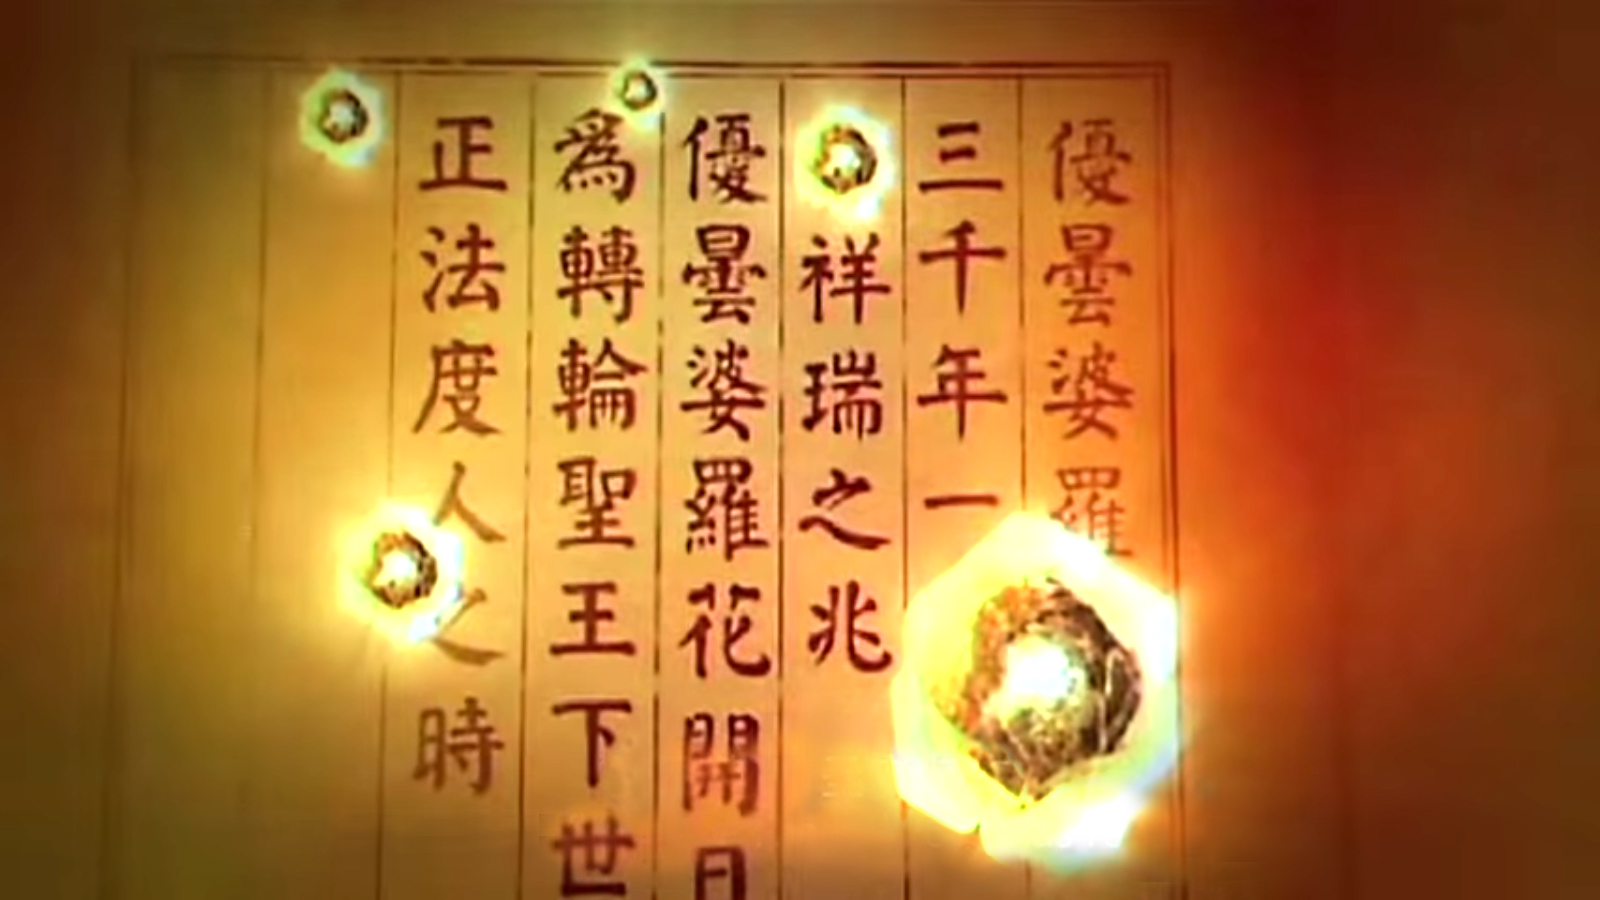 優曇婆羅
三千年一
祥瑞之兆
優曇婆羅花開日
為轉輪聖王下世
正法度人之時